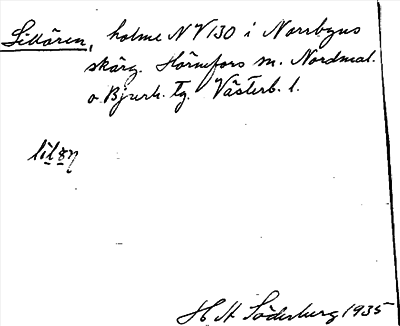 Lillören, holme N V 130 i Norrbyns
skärg. Hörnefors sn. Nordmal.
o. Bjurh. tg. Västerb. l.
H A Söderberg 1935